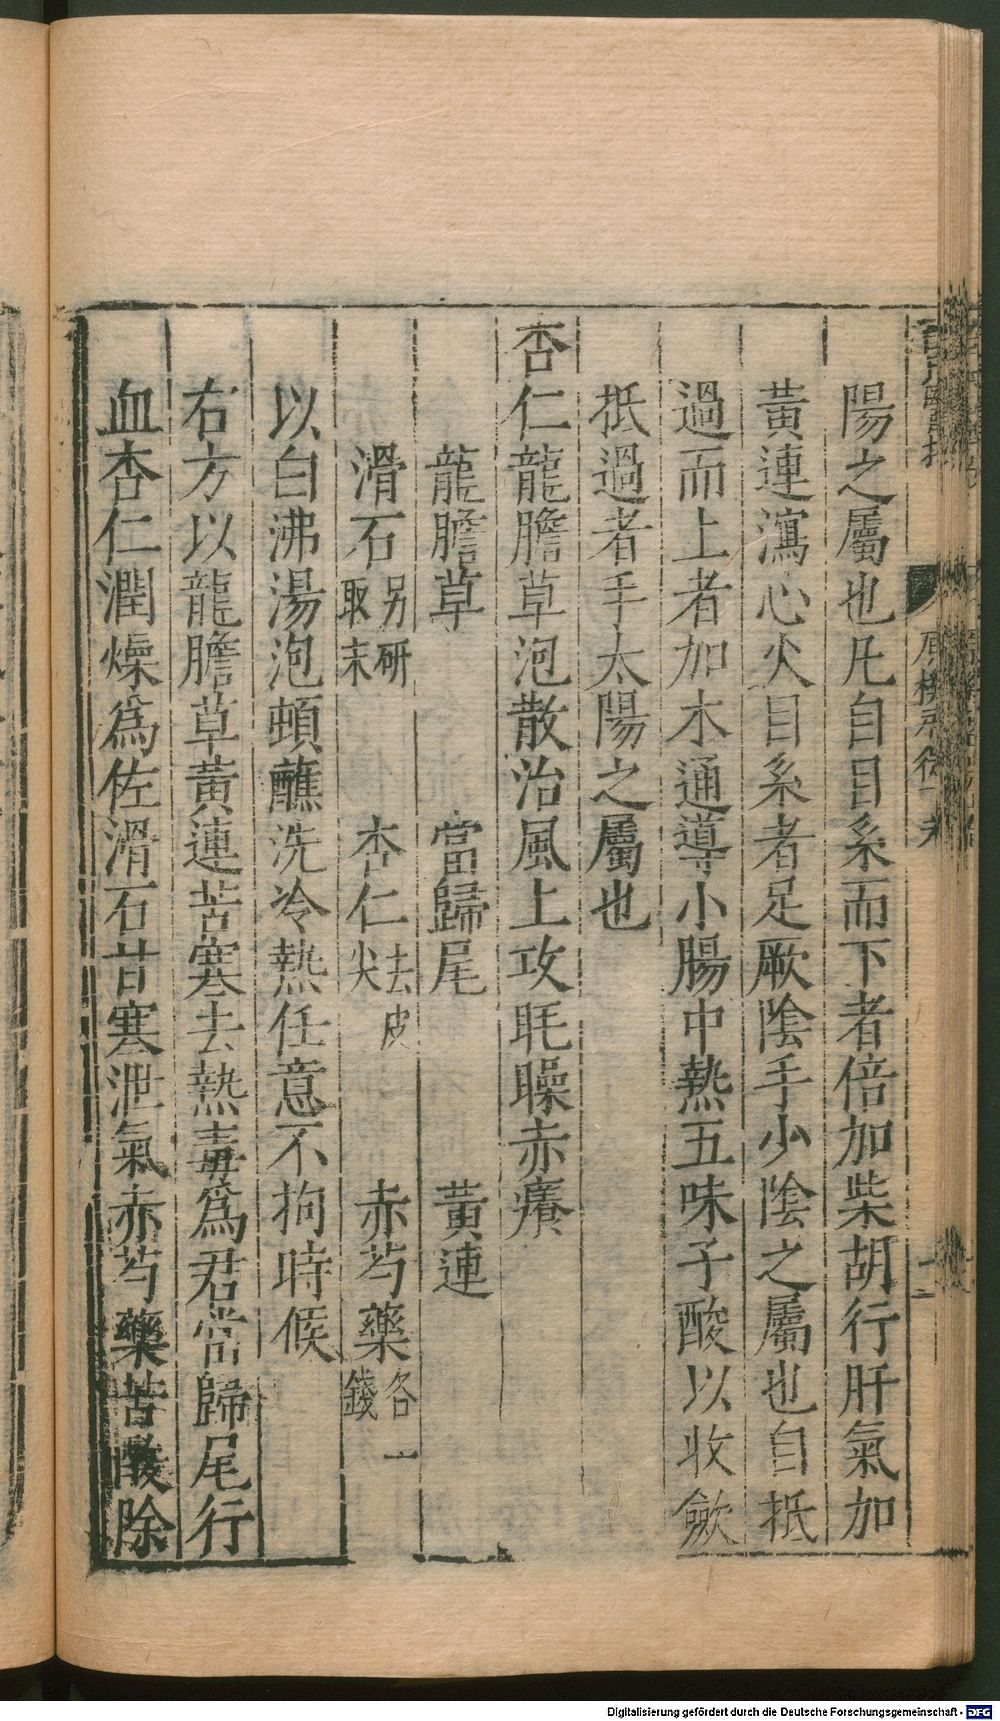 陽之屬也凡自目系而下者倍加柴胡行肝氣加
黃連瀉心火目系者足厥陰手少陰之屬也自抵
過而上者加木通導小腸中熱五味子酸以收斂
抵過者手太陽之屬也
杏仁龍膽草泡散治風上攻眊矂赤癢
龍膽草 當歸尾 黃連
滑石另研取末 杏仁去皮尖 赤芍藥各一錢
以白沸湯泡頓蘸洗冷熱任意不拘時候
右方以龍膽草黃連苦寒去熱毒為君當歸尾行
血杏仁潤燥為佐滑石甘寒泄氣赤芍藥苦酸除
Digitalisierung gefördert durch die Deutsche Forschungsgemeinschaft - DFG